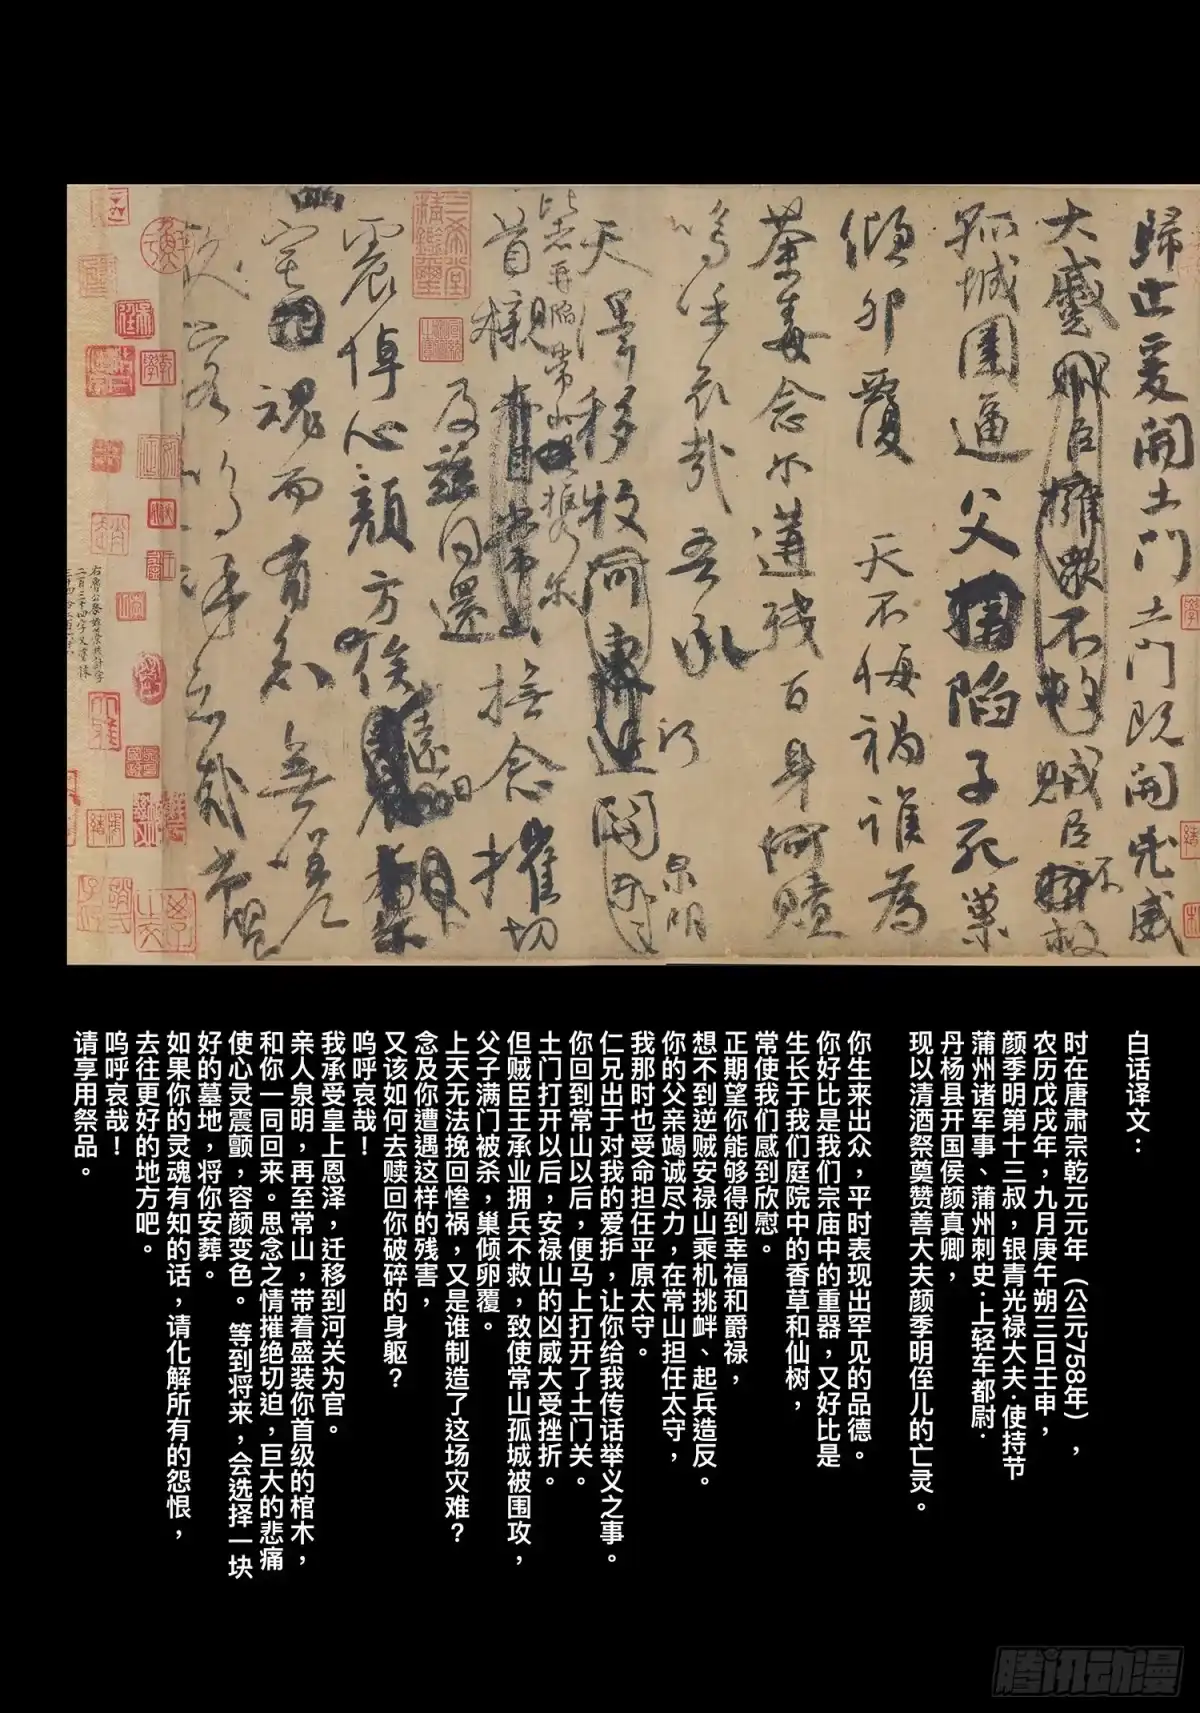 歸止爰開土門土門既開凶威
大蹙賊臣擁眾不救賊臣不救
孤城圍逼父陷子死巢
傾卵覆天不悔禍誰為
荼毒念尔遘殘百身何贖
嗚呼哀哉吾承
天澤移牧河關泉明
比者再陷常山
首櫬
及茲同還撫念摧切
震悼心顏方俟遠日
魂而有知無嗟
嗚呼哀哉尚饗
白话译文：
时在唐肃宗乾元元年（公元758年），
农历戊戌年，九月庚午朔三日壬申，
颜季明第十三叔，银青光禄大夫·使持节
蒲州诸军事、蒲州刺史·上轻车都尉·
丹杨县开国侯颜真卿，
现以清酒祭奠赞善大夫颜季明侄儿的亡灵。
你生来出众，平时表现出罕见的品德。
你好比是我们宗庙中的重器，又好比是
生长于我们庭院中的香草和仙树，
常使我们感到欣慰。
正期望你能够得到幸福和爵禄，
想不到逆贼安禄山乘机挑衅、起兵造反。
你的父亲竭诚尽力，在常山担任太守，
我那时也受命担任平原太守。
仁兄出于对我的爱护，让你给我传话举义之事。
你回到常山以后，便马上打开了土门关。
土门打开以后，安禄山的凶威大受挫折。
但贼臣王承业拥兵不救，致使常山孤城被围攻，
父子满门被杀，巢倾卵覆。
上天无法挽回惨祸，又是谁制造了这场灾难？
念及你遭遇这样的残害，
又该如何去赎回你破碎的身躯？
呜呼哀哉！
我承受皇上恩泽，迁移到河关为官。
亲人泉明，再至常山，带着盛装你首级的棺木，
和你一同回来。思念之情摧绝切迫，巨大的悲痛
使心灵震颤，容颜变色。等到将来，会选择一块
好的墓地，将你安葬。
如果你的灵魂有知的话，请化解所有的怨恨，
去往更好的地方吧。
呜呼哀哉！
请享用祭品。
腾讯动漫